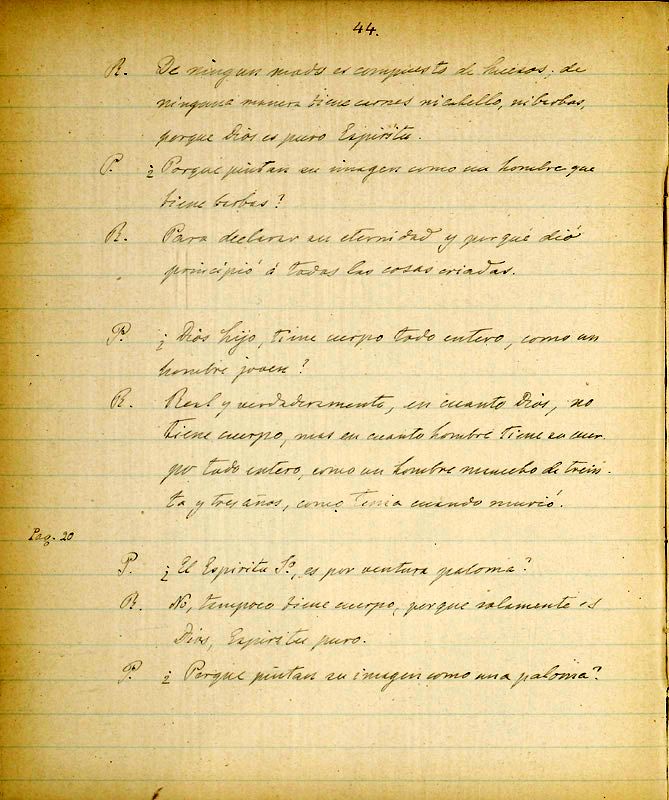 44.
R. De ningun modo es compuesto de huesos, de
ninguna manera tiene carnes ni cabello, ni barbas,
porque Dios es puro Espíritu.
P. ¿Porque pintan su imagen como un hombre que
tiene barbas?
R. Para declarar su eternidad y porque dió
principió á todas las cosas criadas.
P. ¿Dios hijo, tiene cuerpo todo entero, como un
hombre joven?
R. Real y verdaderamente, en cuanto Dios, no
tiene cuerpo, mas en cuanto hombre tiene su cuer-
po todo entero, como un hombre de trein-
ta y tres años, como tenia cuando murió.
Pag. 20
P. ¿El Espiritu Sº, es por ventura paloma?
R. No, tampoco tiene cuerpo, porque solamente es
Dios, Espiritu puro.
P. ¿Porque pintan su imagen como una paloma?